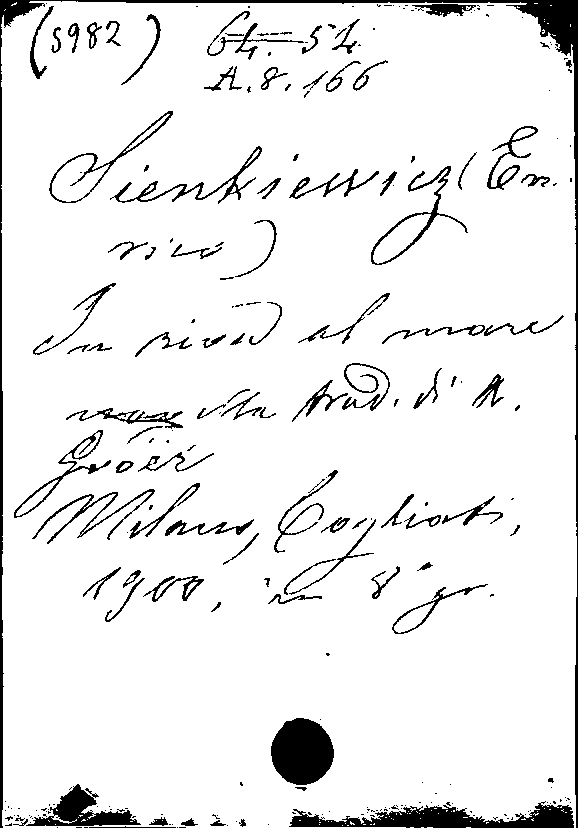 (5982) 64. 54
A. 8. 166
Sienkiewicz (En
rico)
In riva al mare
trad. di A.
Gröer
Milano, Cogliati,
1900, in 8° gr.